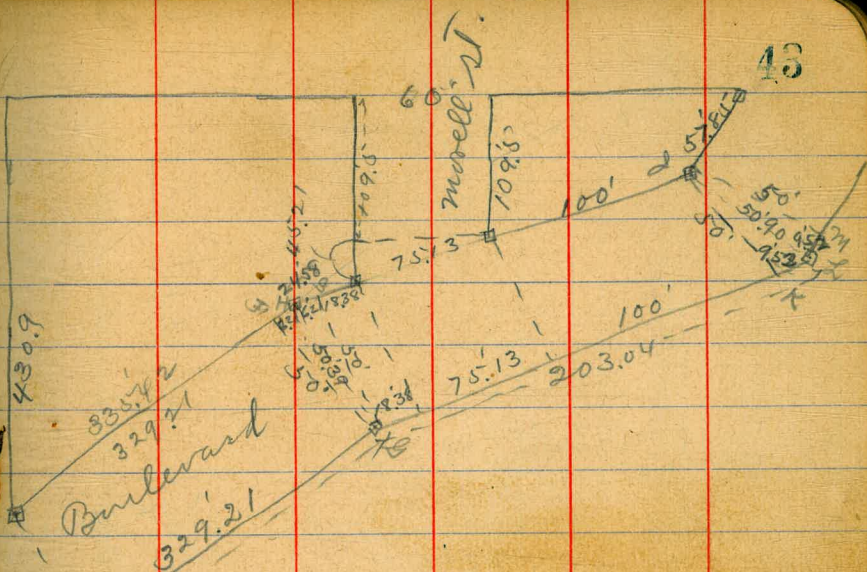 43
60
Morell St.
109.5
109.5
57.84
100'
50'
50.90
9.52
50'
9.52
M
L
K
75.13
45.21
24.58
18.38
50'
50.39
50'
430.9
335.42
329.21
Boulevard
8.38
75.13
100'
203.04
329.21